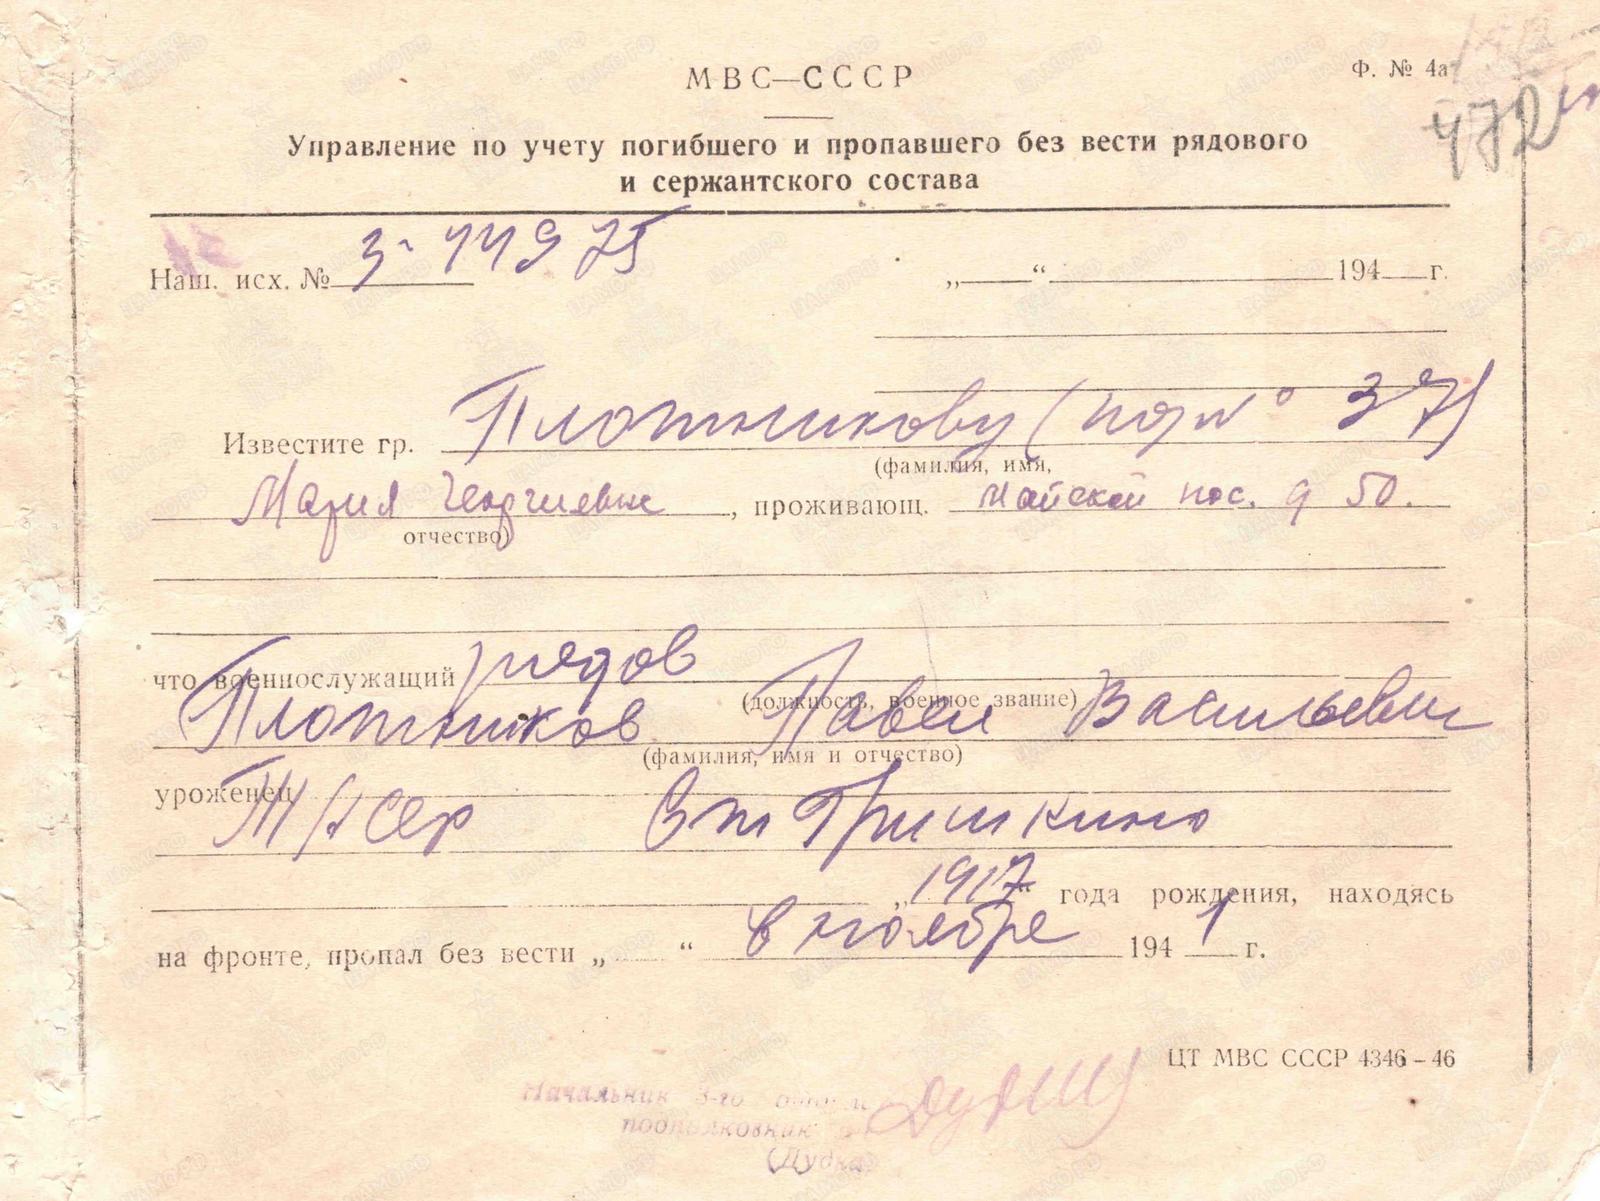 МВС—СССР
Ф. № 4а
472
Управление по учету погибшего и пропавшего без вести рядового
и сержантского состава
Наш. исх. № 3- 11975 „ “ 194 г.
Известите гр. Плотникову ( 37)
(фамилия, имя,
Мария Георгиевне, проживающ. Майский пос. д 50.
отчество)
что военнослужащий рядов
(должность, военное звание)
Плотников Павел Васильевич
(фамилия, имя и отчество)
уроженец
ТАССР Гришкино
„1917“ года рождения, находясь
на фронте, пропал без вести „ “ в ноябре 1941 г.
ЦТ МВС СССР 4346–46
Начальник 3-го отдела
подполковник
(Дудка)